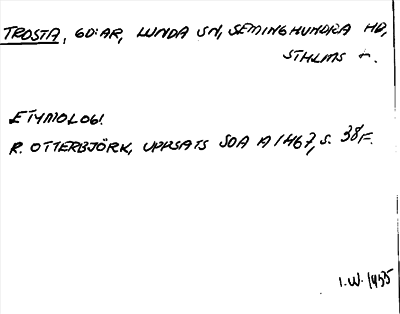 TROSTA, GD:AR, LUNDA SN, SEMINGHUNDRA HD,
STHLMS
ETYMOLOGI
R. OTTERBJÖRK, UPPSATS SOA A 1467, S. 38F.
I.W. 1455